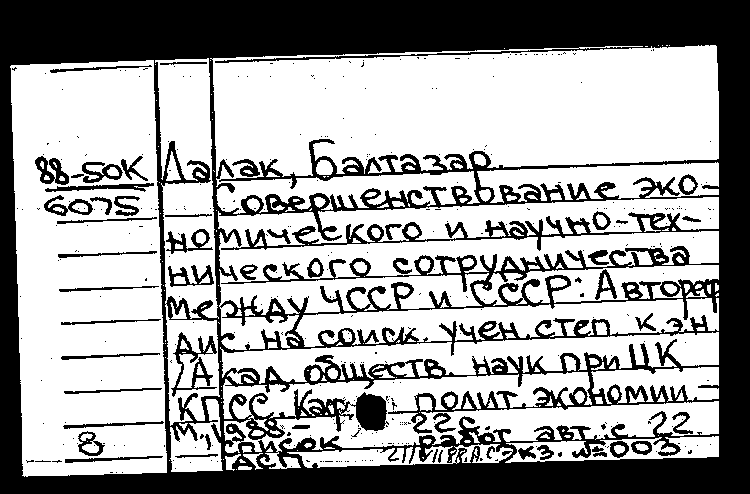 88-50К Лалак, Балтазар.
6075 Совершенствование эко-
номического и научно-тех-
нического сотрудничества
между ЧССР и СССР: Автореф
дис. на соиск. учен. степ. к.э.н.
/Акад. обществ. наук при ЦК
КПСС. Каф. полит. экономии. -
М., 1988. - 22 с.
8 список работ авт.: с. 22.
ДСП. Экз. №003.